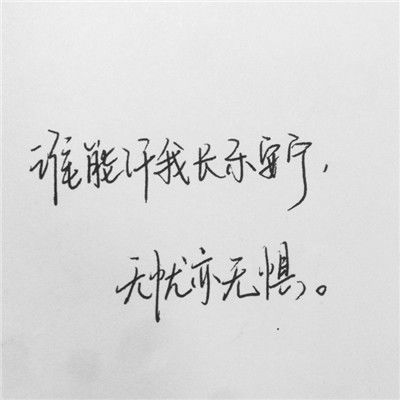 谁能许我长乐安宁，
无忧亦无惧。